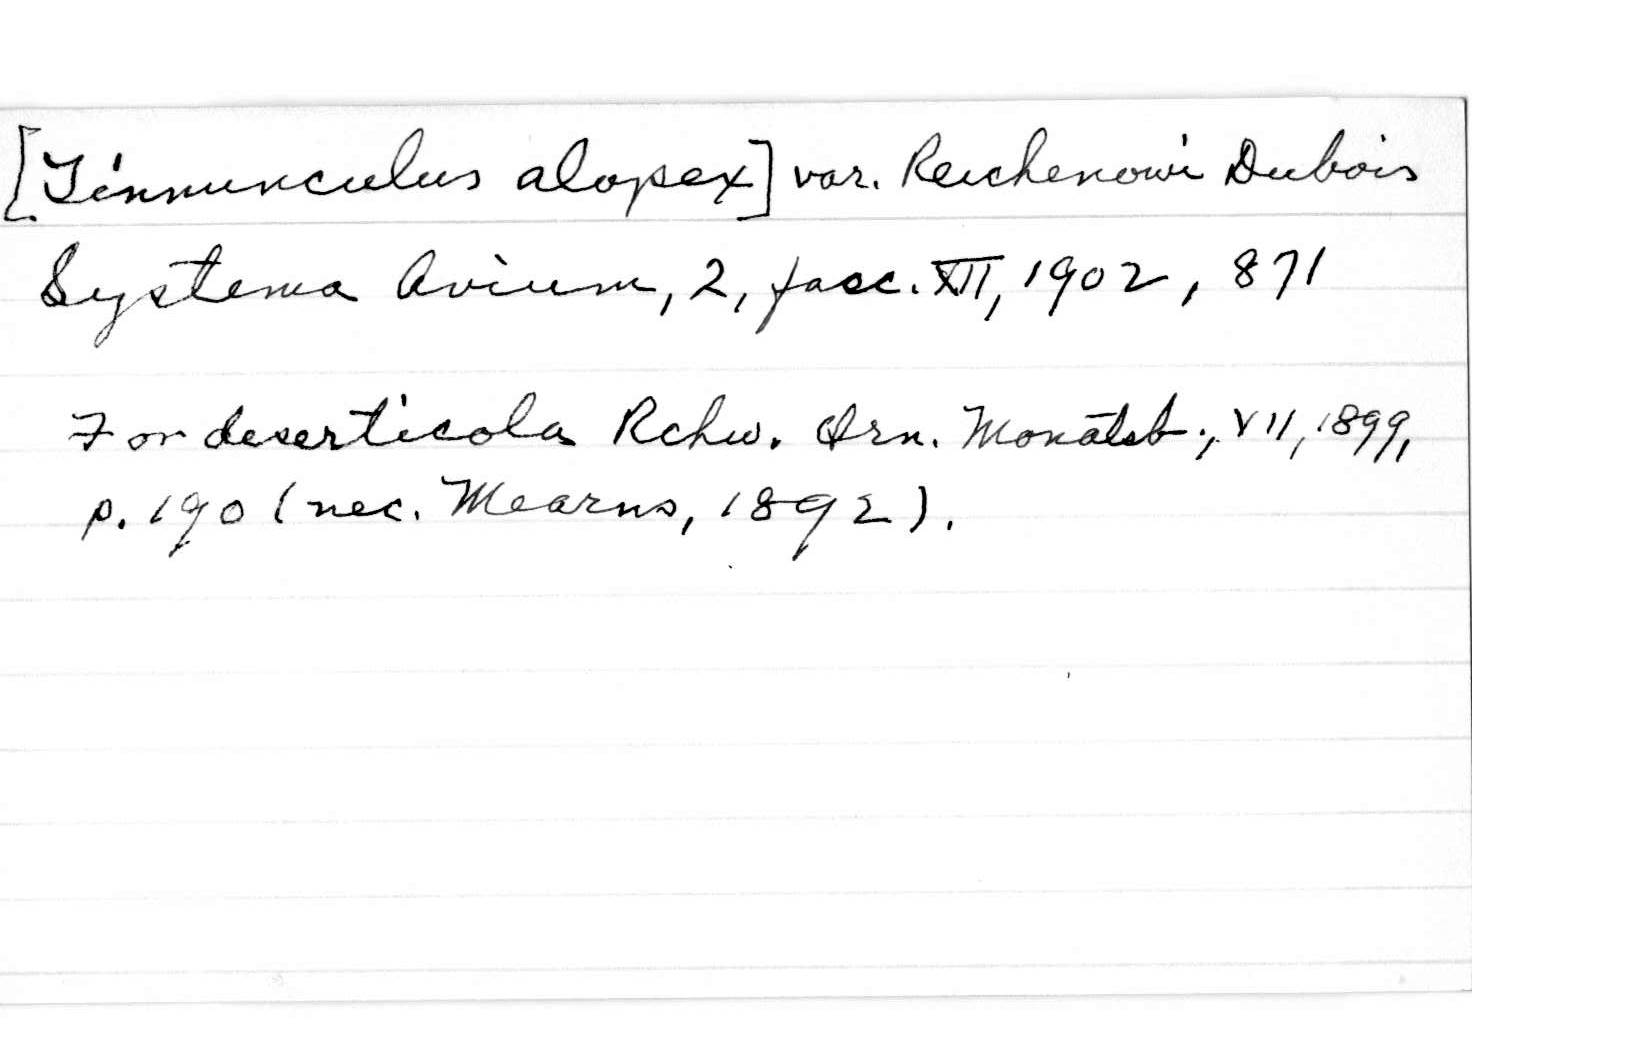 [Tinnunculus alopex] var. Reichenowi Dubois
Systema Avium, 2, fasc. XII, 1902, 871
For deserticola Rchw. Orn. Monatsb., VII, 1899,
p. 190 (nec. Mearns, 1892).